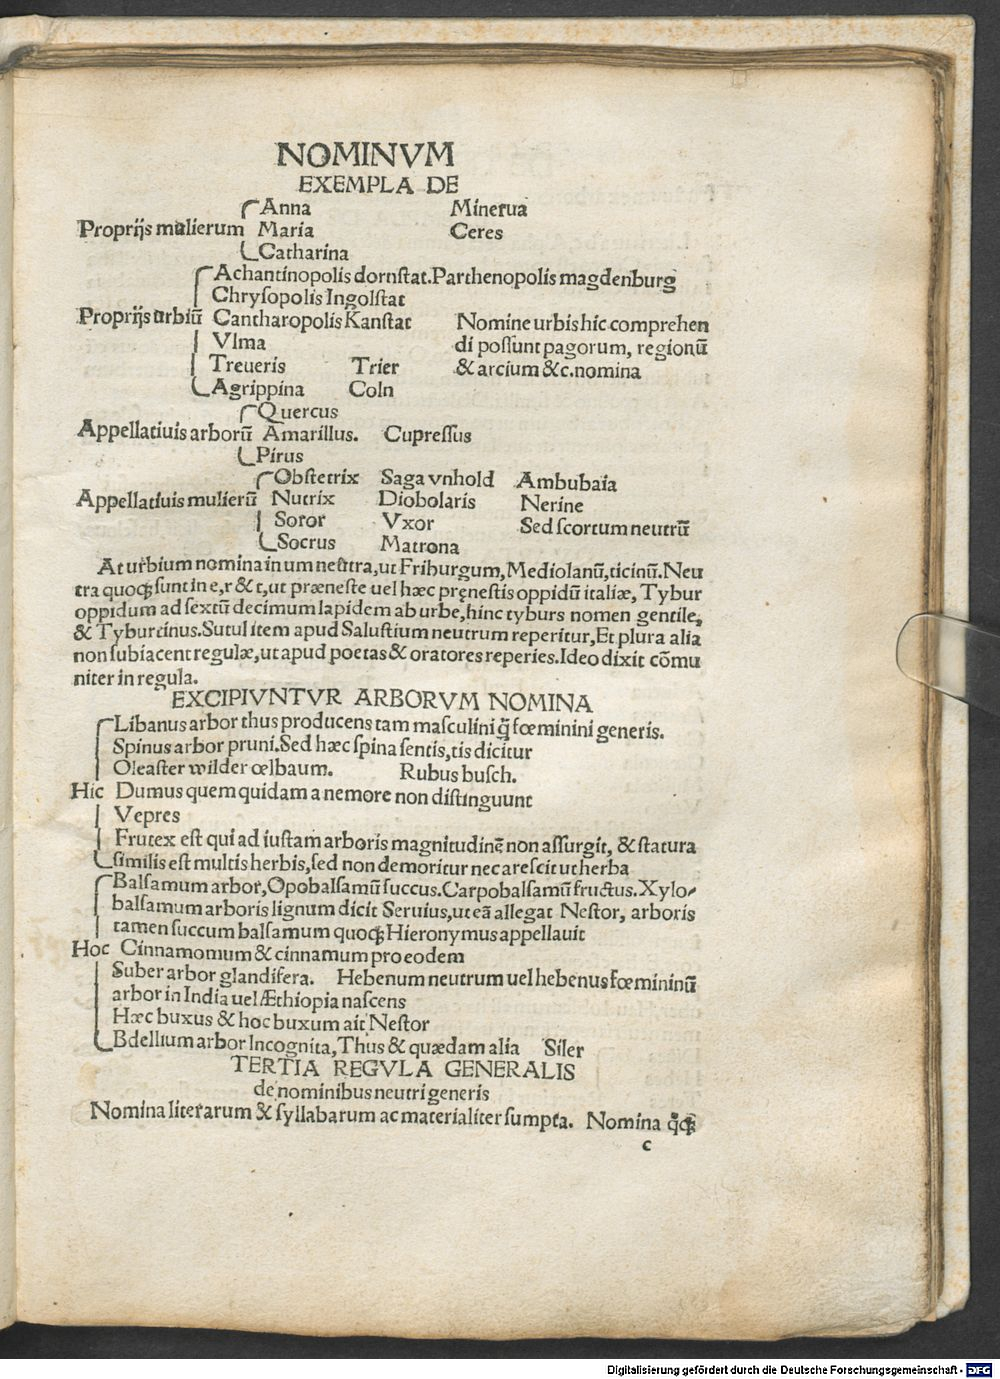 NOMINVM
EXEMPLA DE
Anna Minerua
Proprijs mulierum Maria Ceres
Catharina
Achantinopolis dornſtat. Parthenopolis magdenburg
Chryſopolis Ingolſtat
Proprijs urbiū Cantharopolis Kanſtat Nomine urbis hic comprehen
Vlma di poſſunt pagorum, regionū
Treueris Trier & arcium &c. nomina
Agrippina Coln
Quercus
Appellatiuis arborū Amarillus. Cupreſſus
Pirus
Obſtetrix Saga vnhold Ambubaia
Appellatiuis mulierū Nutrix Diobolaris Nerine
Soror Vxor Sed ſcortum neutrū
Socrus Matrona
At urbium nomina in um neutra, ut Friburgum, Mediolanū, ticinū. Neu
tra quoqꝫ ſunt in e, r & t, ut præneſte uel hæc pręneſtis oppidū italiæ, Tybur
oppidum ad ſextū decimum lapidem ab urbe, hinc tyburs nomen gentile,
& Tyburtinus. Sutul item apud Saluſtium neutrum reperitur, Et plura alia
non ſubiacent regulæ, ut apud poetas & oratores reperies. Ideo dixit cōmu
niter in regula.
EXCIPIVNTVR ARBORVM NOMINA
Libanus arbor thus producens tam maſculini q̃ fœminini generis.
Spinus arbor pruni. Sed hæc ſpina ſentis, tis dicitur
Oleaſter wilder œlbaum. Rubus buſch.
Hic Dumus quem quidam a nemore non diſtinguunt
Vepres
Frutex eſt qui ad iuſtam arboris magnitudinē non aſſurgit, & ſtatura
ſimilis eſt multis herbis, ſed non demoritur nec areſcit ut herba
Balſamum arbor, Opobalſamū ſuccus. Carpobalſamū fructus. Xylo-
balſamum arboris lignum dicit Seruius, ut eā allegat Neſtor, arboris
tamen ſuccum balſamum quoqꝫ Hieronymus appellauit
Hoc Cinnamomum & cinnamum pro eodem
Suber arbor glandifera. Hebenum neutrum uel hebenus fœmininū
arbor in India uel Æthiopia naſcens
Hæc buxus & hoc buxum ait Neſtor
Bdellium arbor Incognita, Thus & quædam alia Siler
TERTIA REGVLA GENERALIS
de nominibus neutri generis
Nomina literarum & ſyllabarum ac materialiter ſumpta. Nomina q̊qꝫ
c
Digitalisierung gefördert durch die Deutsche Forschungsgemeinschaft - DFG